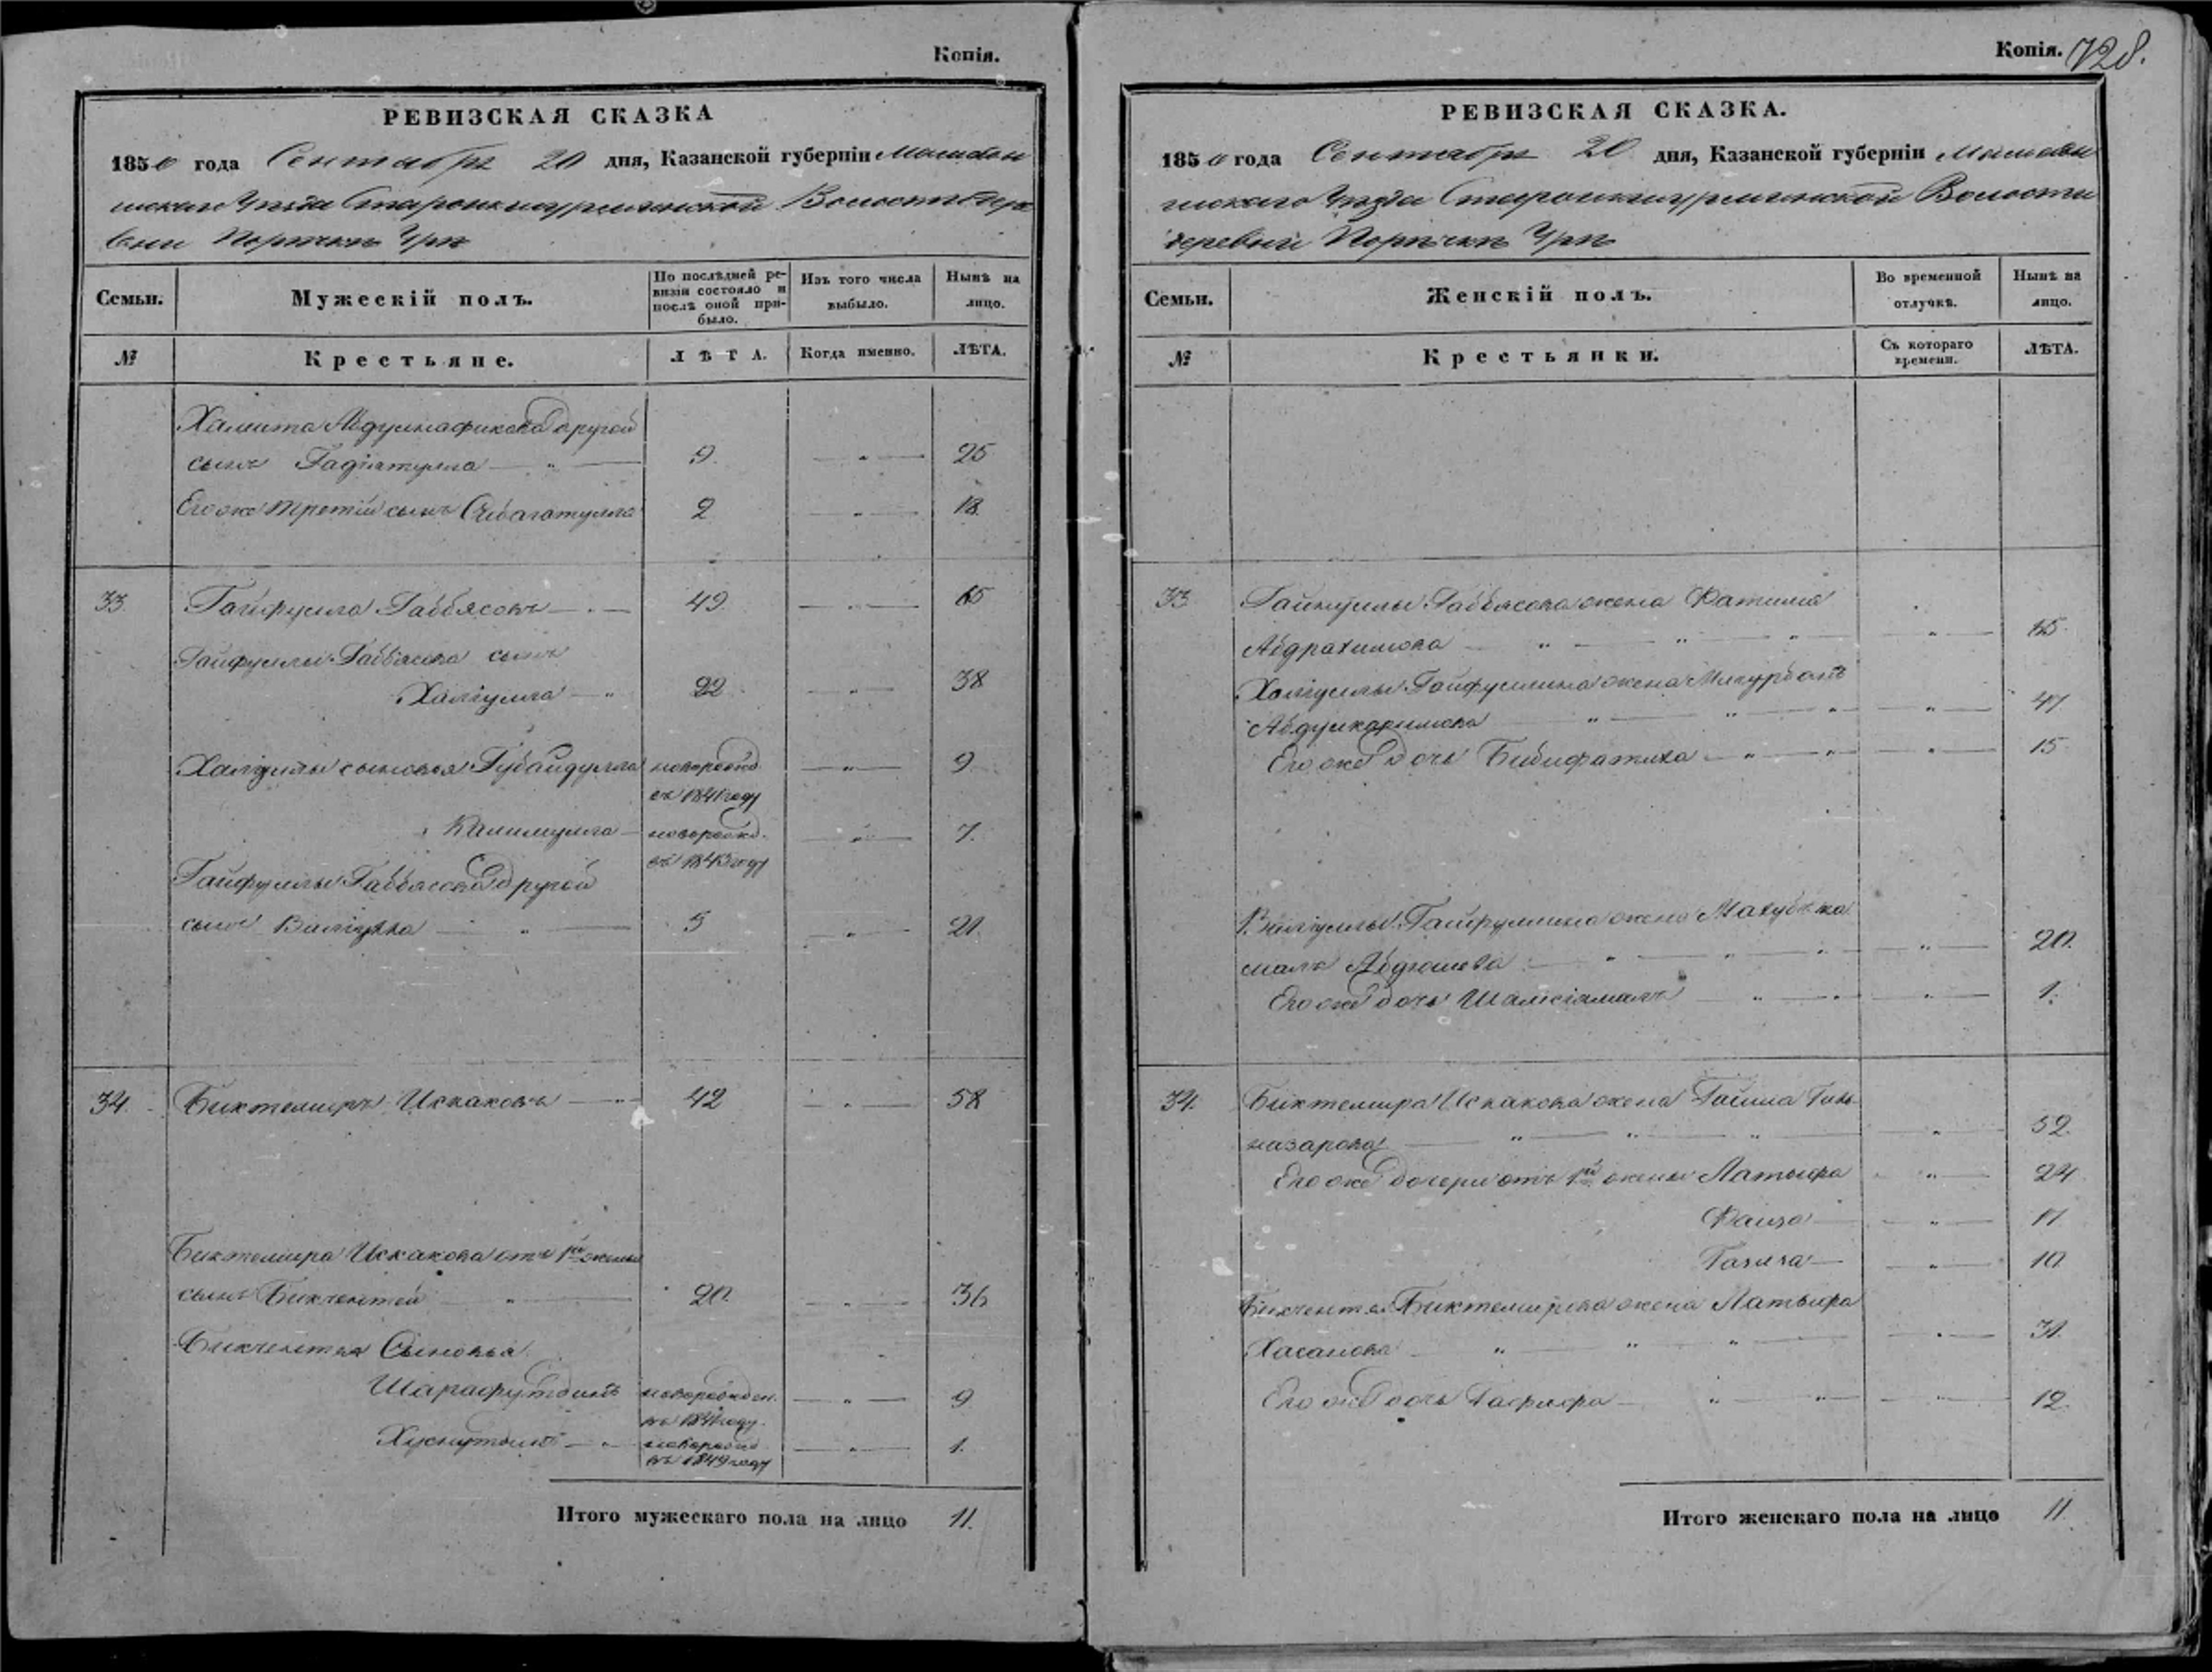 Копія.
РЕВИЗСКАЯ СКАЗКА
1850 года Сентября 20 дня, Казанской губерніи Мамадыш
скаго Уѣзда Волости дере
вни Порѣчкъ Уръ
Семьи.
Мужескій полъ.
По послѣдней ре-
визіи состояло и
послѣ оной при-
было.
Изъ того числа
выбыло.
Нынѣ на
лицо.
№
Крестьяне.
ЛѢТА.
Когда именно.
ЛѢТА.
Хамита другой
сынъ Гадіятулла 9 25
Его же третій сынъ 2 18
33 Гайфулла Габбясовъ 49 65
Гайфуллы Габбясова сынъ
Халіулла 22 38
Халіуллы сыновья Губайдулла новорожд. 9
въ 1841 году
Калимулла новорожд. 7.
въ 1843 году
Гайфуллы Габбясова другой
сынъ Валіулла 5 21
34. Биктемиръ Искаковъ 42 58
Биктемира Искакова отъ 1й жены
сынъ Бикчентей 20. 36
Бикчентея Сыновья
Шарафутдинъ новорожден. 9
въ 1841 году.
Хуснутдинъ новорожд 1.
въ 1849 году
Итого мужескаго пола на лицо 11.
Копія. 728.
РЕВИЗСКАЯ СКАЗКА.
1850 года Сентября 20 дня, Казанской губерніи Мамадыш
скаго Уѣзда Волости
деревни Порѣчкъ Уръ
Семьи.
Женскій полъ.
Во временной
отлучкѣ.
Нынѣ на
лицо.
№
Крестьянки.
Съ котораго
времени.
ЛѢТА.
33 Габбясова жена Фатима
Абдрахимова 65.
Халіуллы Гайфуллина жена
Абдулкаримова 47
Его же дочь Бибифатиха 15
Валіуллы Гайфуллина жена
малъ 20.
Его же дочь 1.
34. Биктемира Искакова жена
назарова 52.
Его же дочери отъ 1й жены Латыфа 24
Фаиза 17
Газиза 10
Бикчентея Биктемирова жена Латыфа
Хасанова 31.
Его же дочь 12.
Итого женскаго пола на лицо 11.